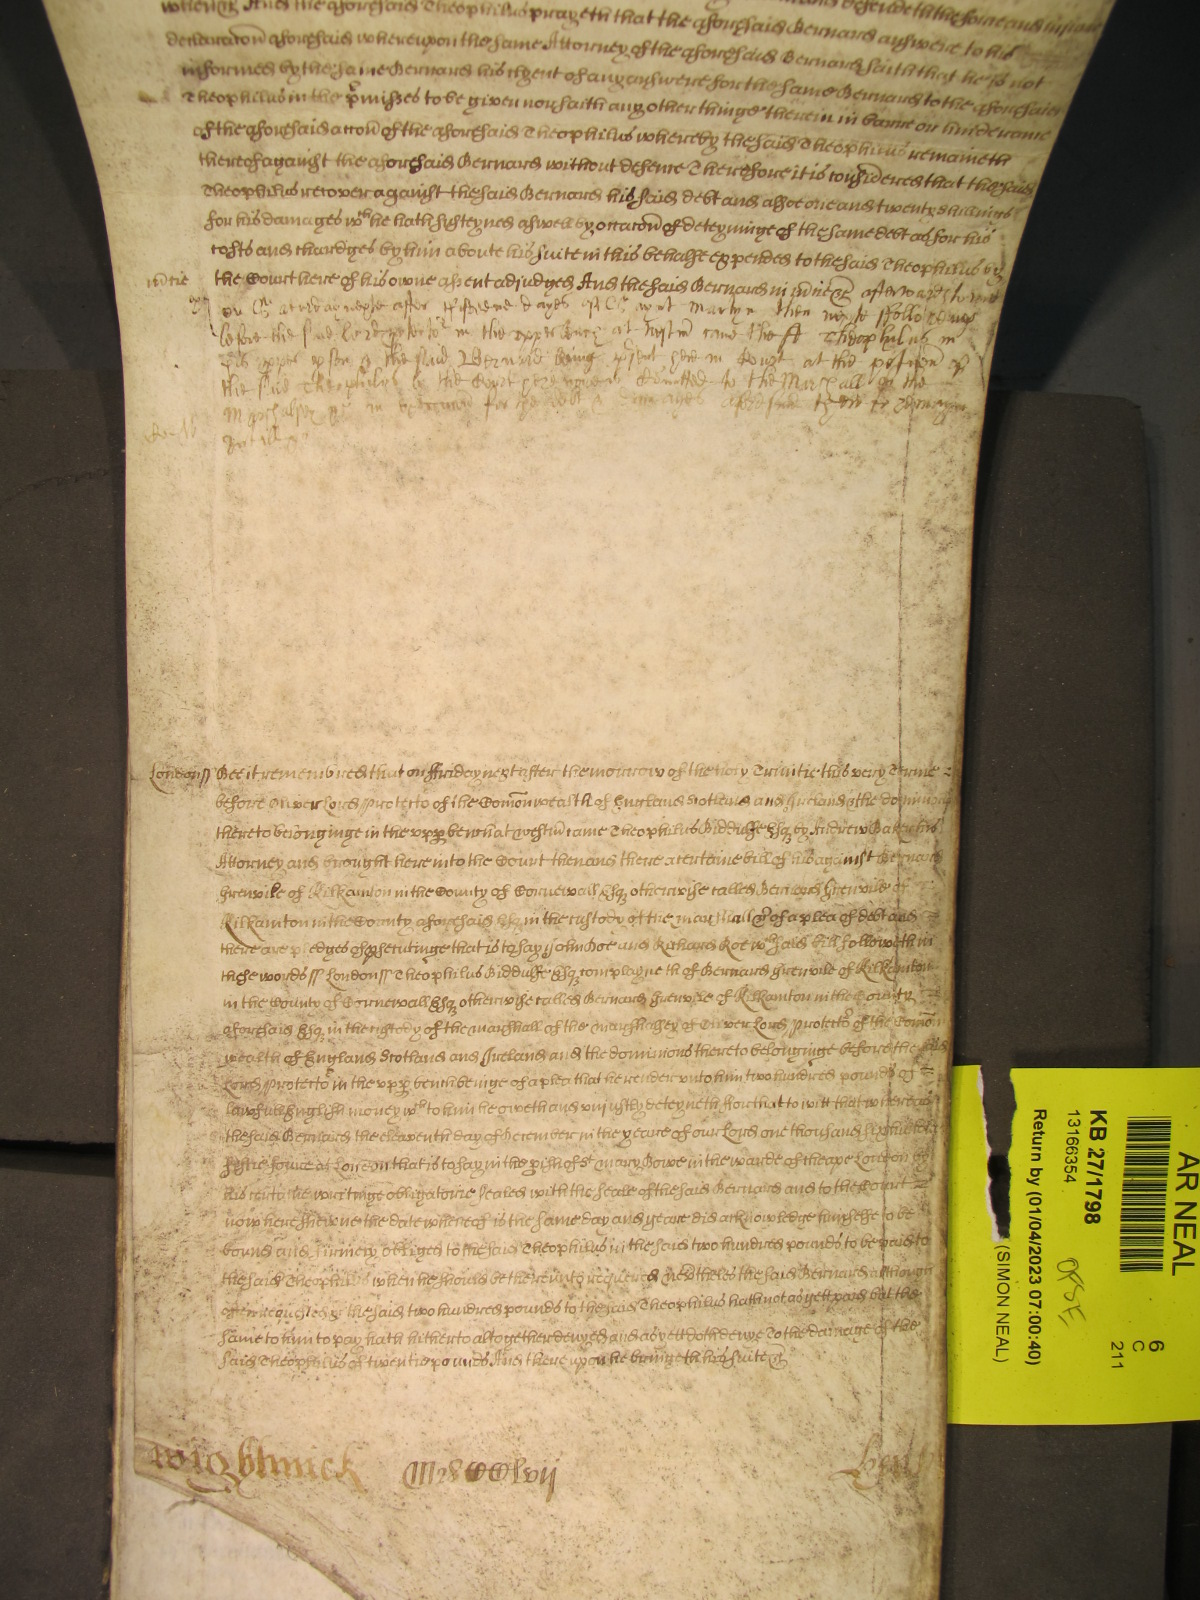 the aforesaid Theophilus prayeth that the aforesaid Bernard answere to his
declaracon aforesaid whereupon the same Attorney of the aforesaid Bernard saith that he is not
informed by the same Bernard his clyent of any answere for the same Bernard to the aforesaid
Theophilus in the p̄misses to be given nor saith any other thinge therein in barre or hinderance
of the aforesaid accon̄ of the aforesaid Theophilus whereby the said Theophilus remaineth
thereof against the aforesaid Bernard without defence Therefore it is considered that the said
Theophilus recover against the said Bernard his said debt and alsoe one and twenty shillings
for his damages wch he hath susteyned aswell by occacon̄ of deteyninge of the same debt as for his
costs and chardges by him aboute his suite in this behalfe expended to the said Theophilus by
the Court here of his owne assent adjudged And the said Bernard in afterwards
on next after fifteene dayes of St Martyn then next followinge
before the said lord protector in the upper bench at Westm̄ came the Theophilus in
his p̱per p̱son & the said Bernard being p̱sent here in Court at the peticon of
the said Theophilus by the Court here is Comitted to the Marshall of the
Marshalsey in execucion for the debt & damages aforesaid there to remayne
untill
London ss Bee it remembred that on ffriday next after the morrow of the holy Trinitie this very Terme
before Our Lord Protector of the Comon̄wealth of England Scotland and Ireland & the dominions
thereto belonginge in the upp̱ bench at Westm̄ came Theophilus Biddulfe Esq by Andrew Baker his
Attorney and brought here into the Court then and there a certeine bill of his against Bernard
Grenvile of Kilkamton in the County of Cornewall Esq otherwise called Bernard Grenvile of
Kilkamton in the County aforesaid Esq in the custody of the marshall &c of a plea of debt and
there are pledges of p̱secutinge that is to say John Doe and Richard Roe wch said bill followeth in
these words ss London ss Theophilus Biddulfe Esq complayneth of Bernard Grenvile of Kilkamton
in the County of Cornewall Esq otherwise called Bernard Grenvile of Kilkamton in the County
aforesaid Esq in the custody of the marshall of the marshalsey of Our Lord Protector of the Comon̄
wealth of England Scotland and Ireland and the dominions thereto belonginge before the said
Lord Protector in the upp̱ bench beinge of a plea that he render unto him two hundred pounds of
lawfull English money wch to him he oweth and unjustly deteyneth ffor that to witt that whereas
the said Bernard the eleaventh day of December in the yeare of our Lord one thousand six hundred
fiftie foure at London that is to say in the pish of St Mary Bowe in the warde of cheape London by
his certaine writinge obligatorie sealed with the seale of the said Bernard and to the Court
now here shewne the date whereof is the same day and yeare did acknowledge himselfe to be
bound and firmely obliged to the said Theophilus in the said two hundred pounds to be paid to
the said Theophilus when he should be thereunto required Nev̱theles the said Bernard although
often requested &c the said two hundred pounds to the said Theophilus hath not as yett paid but the
same to him to pay hath hitherto altogether denyed and as yett doth denie To the damage of the
said Theophilus of twentie pounds And thereupon he bringeth his suite &c
MDCCCCCClvij
AR NEAL
KB 27/1798
13166354
Return by (01/04/2023 07:00:40)
(SIMON NEAL)
6
C
211